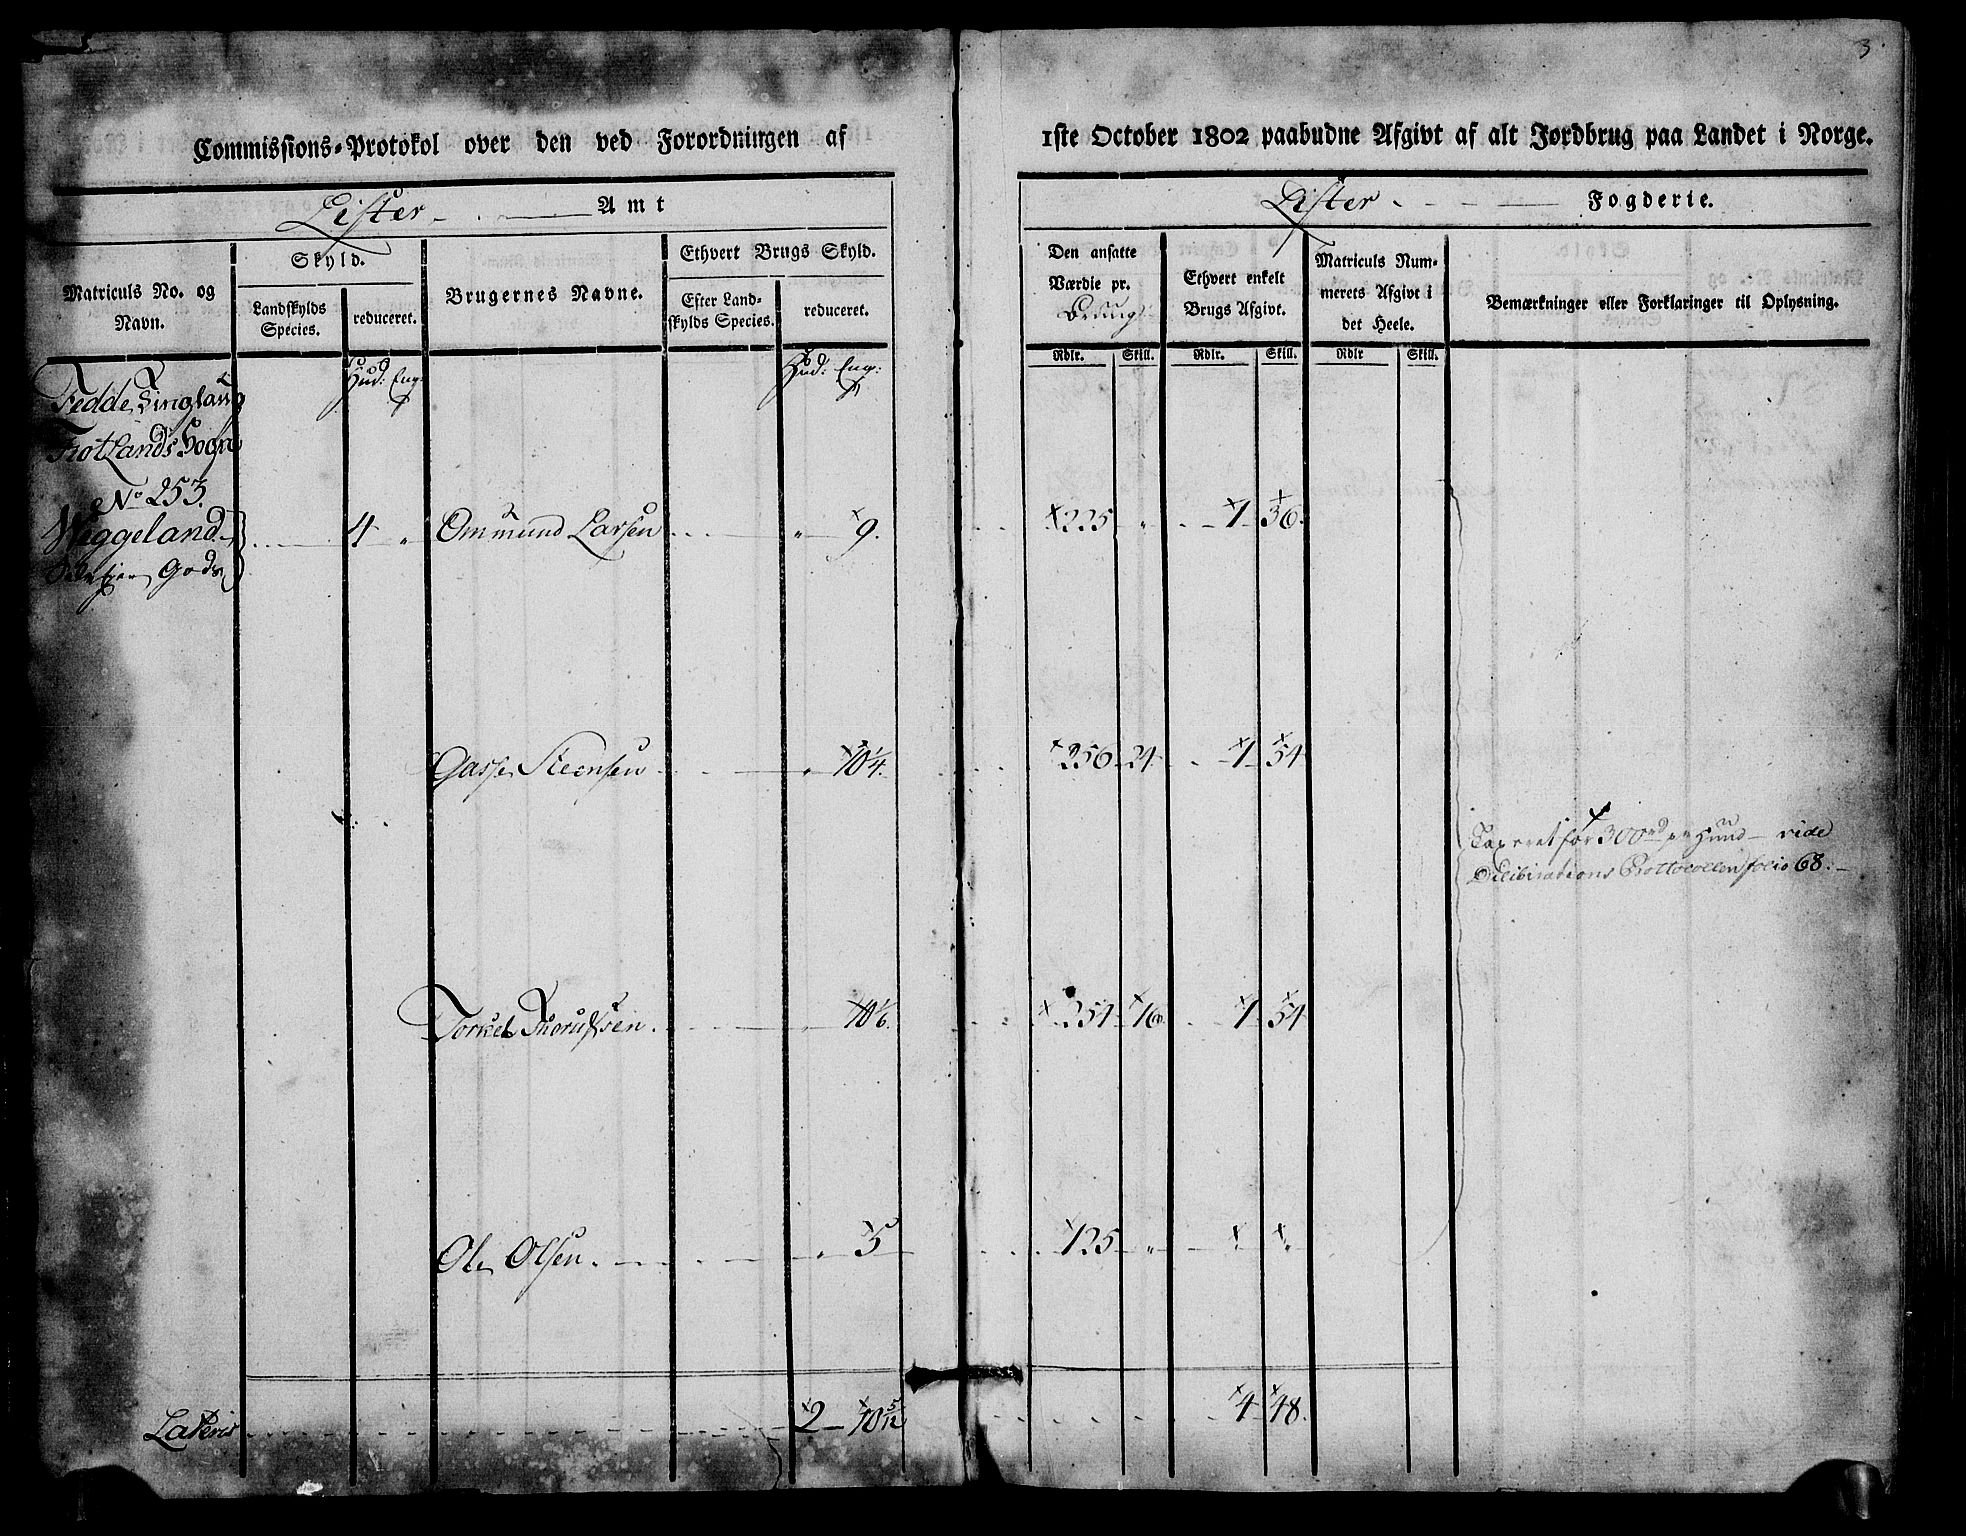 3.
Commissions-Protokol over den ved Forordningen af 1ste October 1802 paabudne Afgivt af alt Jordbrug paa Landet i Norge.
Lister Amt
Lister Fogderie.
Matriculs No. og Navn.
Skyld.
Landskylds Species.
reduceret.
Brugernes Navne.
Ethvert Brugs Skyld.
Efter Landskylds Species.
reduceret.
Den ansatte Værdie pr. Brug
Ethvert enkelt Brugs Afgivt.
Matriculs Nummerets Afgivt i det Heele.
Bemærkninger eller Forklaringer til Oplysning.
Hud: Eng:
Hud: Eng:
Rdlr. Skill. Rdlr. Skill. Rdlr Skill.
Fedde Tinglaug
Sogn
No 253.
Weggeland 4 " Ommund Larsen " 9. 225 " 1 36.
Gods
Steensen " 10 1/4. 256 24 1 54
Taxeret for 300 rd pr Huud vide
Delibirations Prottocollen folio 68.
Torkel " 10 1/6. 254 16 1 54
Ole Olsen " 5 125 "
Lateris 2 10 5/12 4 48.